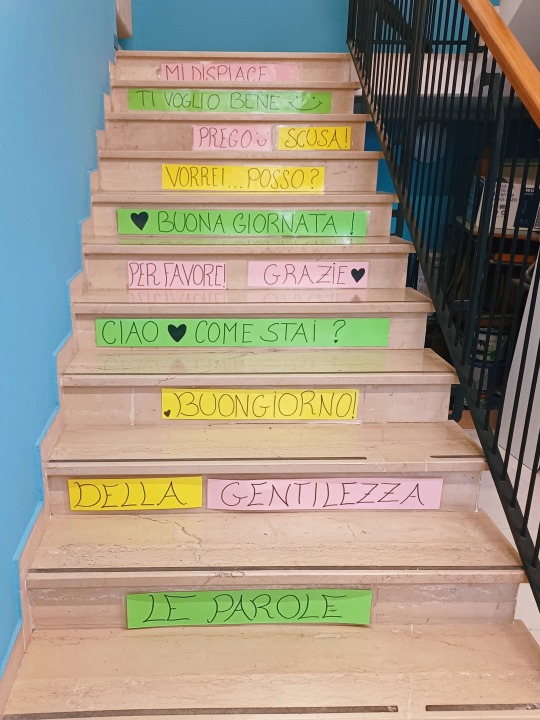 MI DISPIACE
TI VOGLIO BENE
PREGO SCUSA!
VORREI... POSSO?
BUONA GIORNATA!
PER FAVORE! GRAZIE
CIAO COME STAI?
BUONGIORNO!
DELLA GENTILEZZA
LE PAROLE